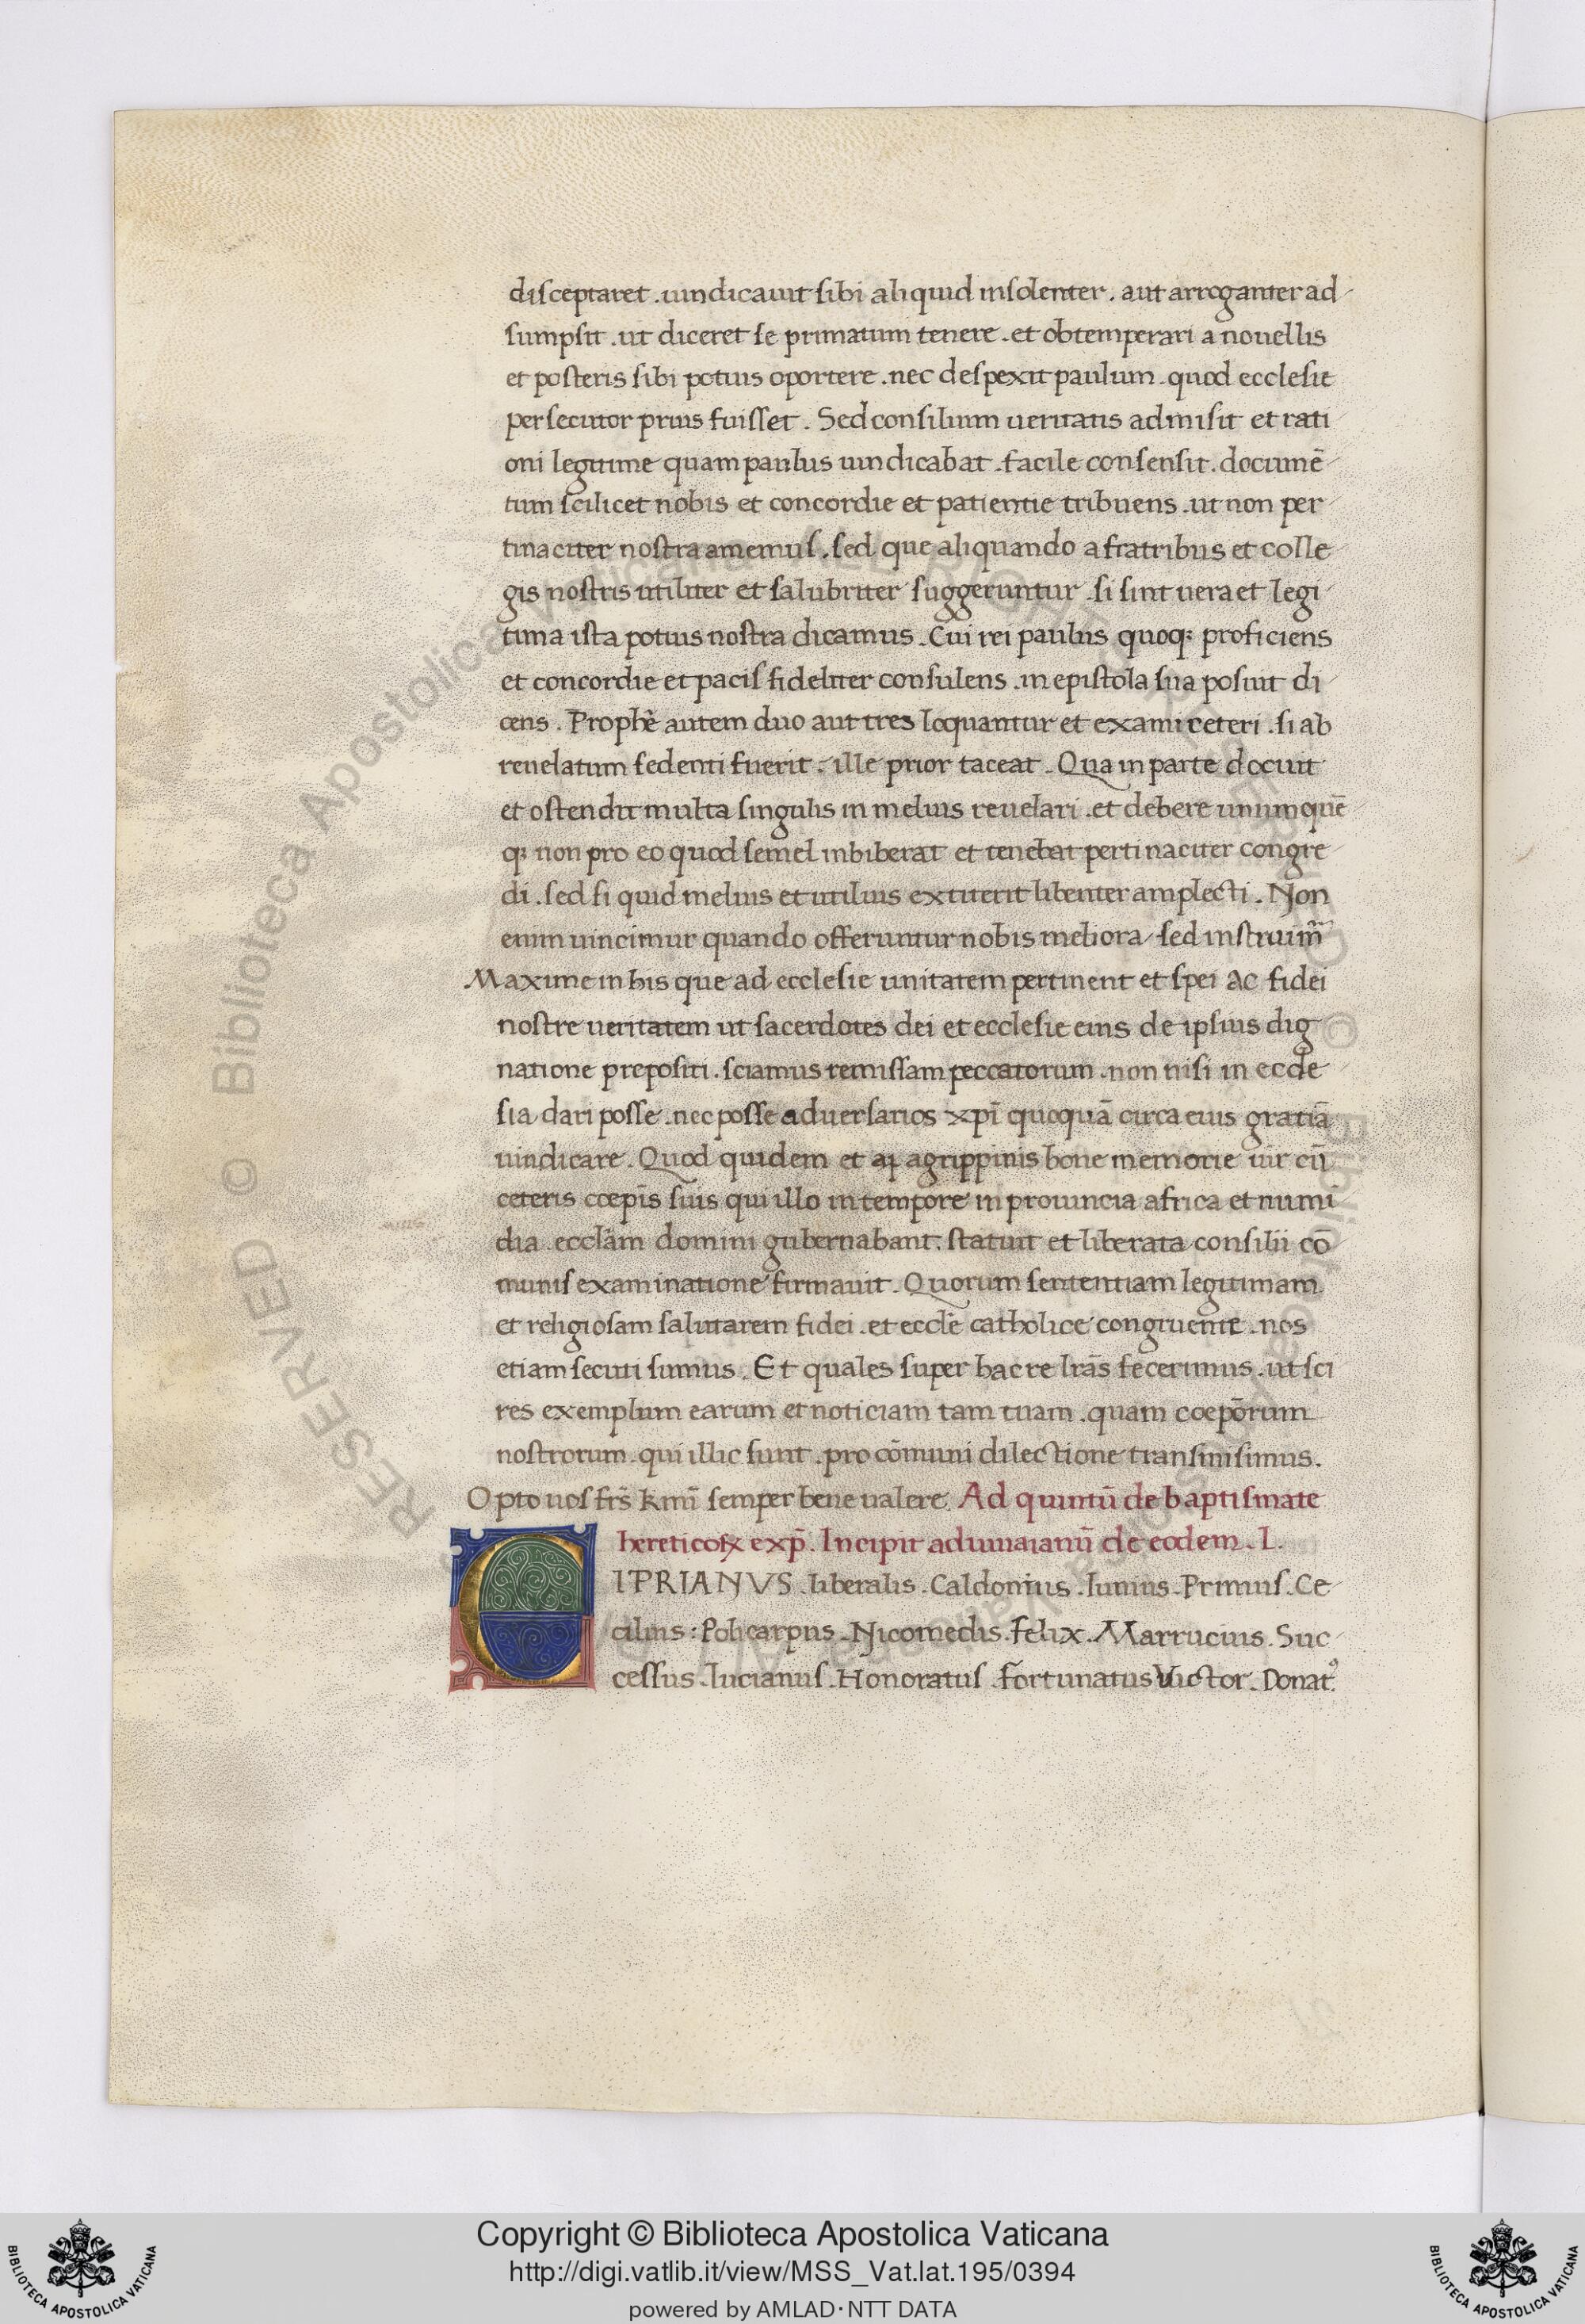 disceptaret . uindicauit sibi aliquid insolenter . aut arroganter ad
sumpsit . ut diceret se primatum tenere . et obtemperari a nouellis
et posteris sibi potius oportere . nec despexit paulum . quod ecclesie
persecutor prius fuisset . Sed consilium ueritatis admisit et rati
oni legitime quam paulus uindicabat . facile consensit . documē
tum scilicet nobis et concordie et patientie tribuens . ut non per
tinaciter nostra amemus . sed que aliquando a fratribus et colle
gis nostris utiliter et salubriter suggeruntur . si sint uera et legi
tima ista potius nostra dicamus . Cui rei paulus quoqꝫ proficiens
et concordie et pacis fideliter consulens . in epistola sua posuit di
cens . Prophē autem duo aut tres loquantur et exami ceteri . si ab
reuelatum sedenti fuerit . ille prior taceat . Qua in parte docuit
et ostendit multa singulis in melius reuelari . et debere unumquē
qꝫ non pro eo quod semel inbiberat et tenebat pertinaciter congre
di . sed si quid melius et utilius extiterit libenter amplecti . Non
enim uincimur quando offeruntur nobis meliora sed instruim̄
Maxime in his que ad ecclesie unitatem pertinent et spei ac fidei
nostre ueritatem ut sacerdotes dei et ecclesie eius de ipsius dig
natione prepositi . sciamus remissam peccatorum . non nisi in eccle
sia dari posse . nec posse aduersarios xp̄i quoquā circa eius gratiā
uindicare . Quod quidem et agrippinis bone memorie uir cū
ceteris coep̄is suis qui illo in tempore in prouincia africa et numi
dia . ecclām domini gubernabant . statuit et liberata consilii cō
munis examinatione firmauit . Quorum sententiam legitimam
et religiosam salutarem fidei . et ecclē catholice congruente . nos
etiam secuti sumus . Et quales super hac re lrās fecerimus . ut sci
res exemplum earum et noticiam tam tuam . quam coep̄orum
nostrorum . qui illic sunt . pro cōmuni dilectione transmisimus .
Opto uos frs̄ kmī semper bene ualere . Ad quintū de baptismate
hereticoꝝ exp̄ . Incipit ad iuuaianū de eodem . L .
CIPRIANVS . liberalis . Caldonius . Iunius . Primus . Ce
cilius : Policarpus . Nicomedis . Felix . Marrucius . Suc
cessus . lucianus . Honoratus . Fortunatus Victor . Donatꝰ .
Copyright © Biblioteca Apostolica Vaticana
http://digi.vatlib.it/view/MSS_Vat.lat.195/0394
powered by AMLAD·NTT DATA